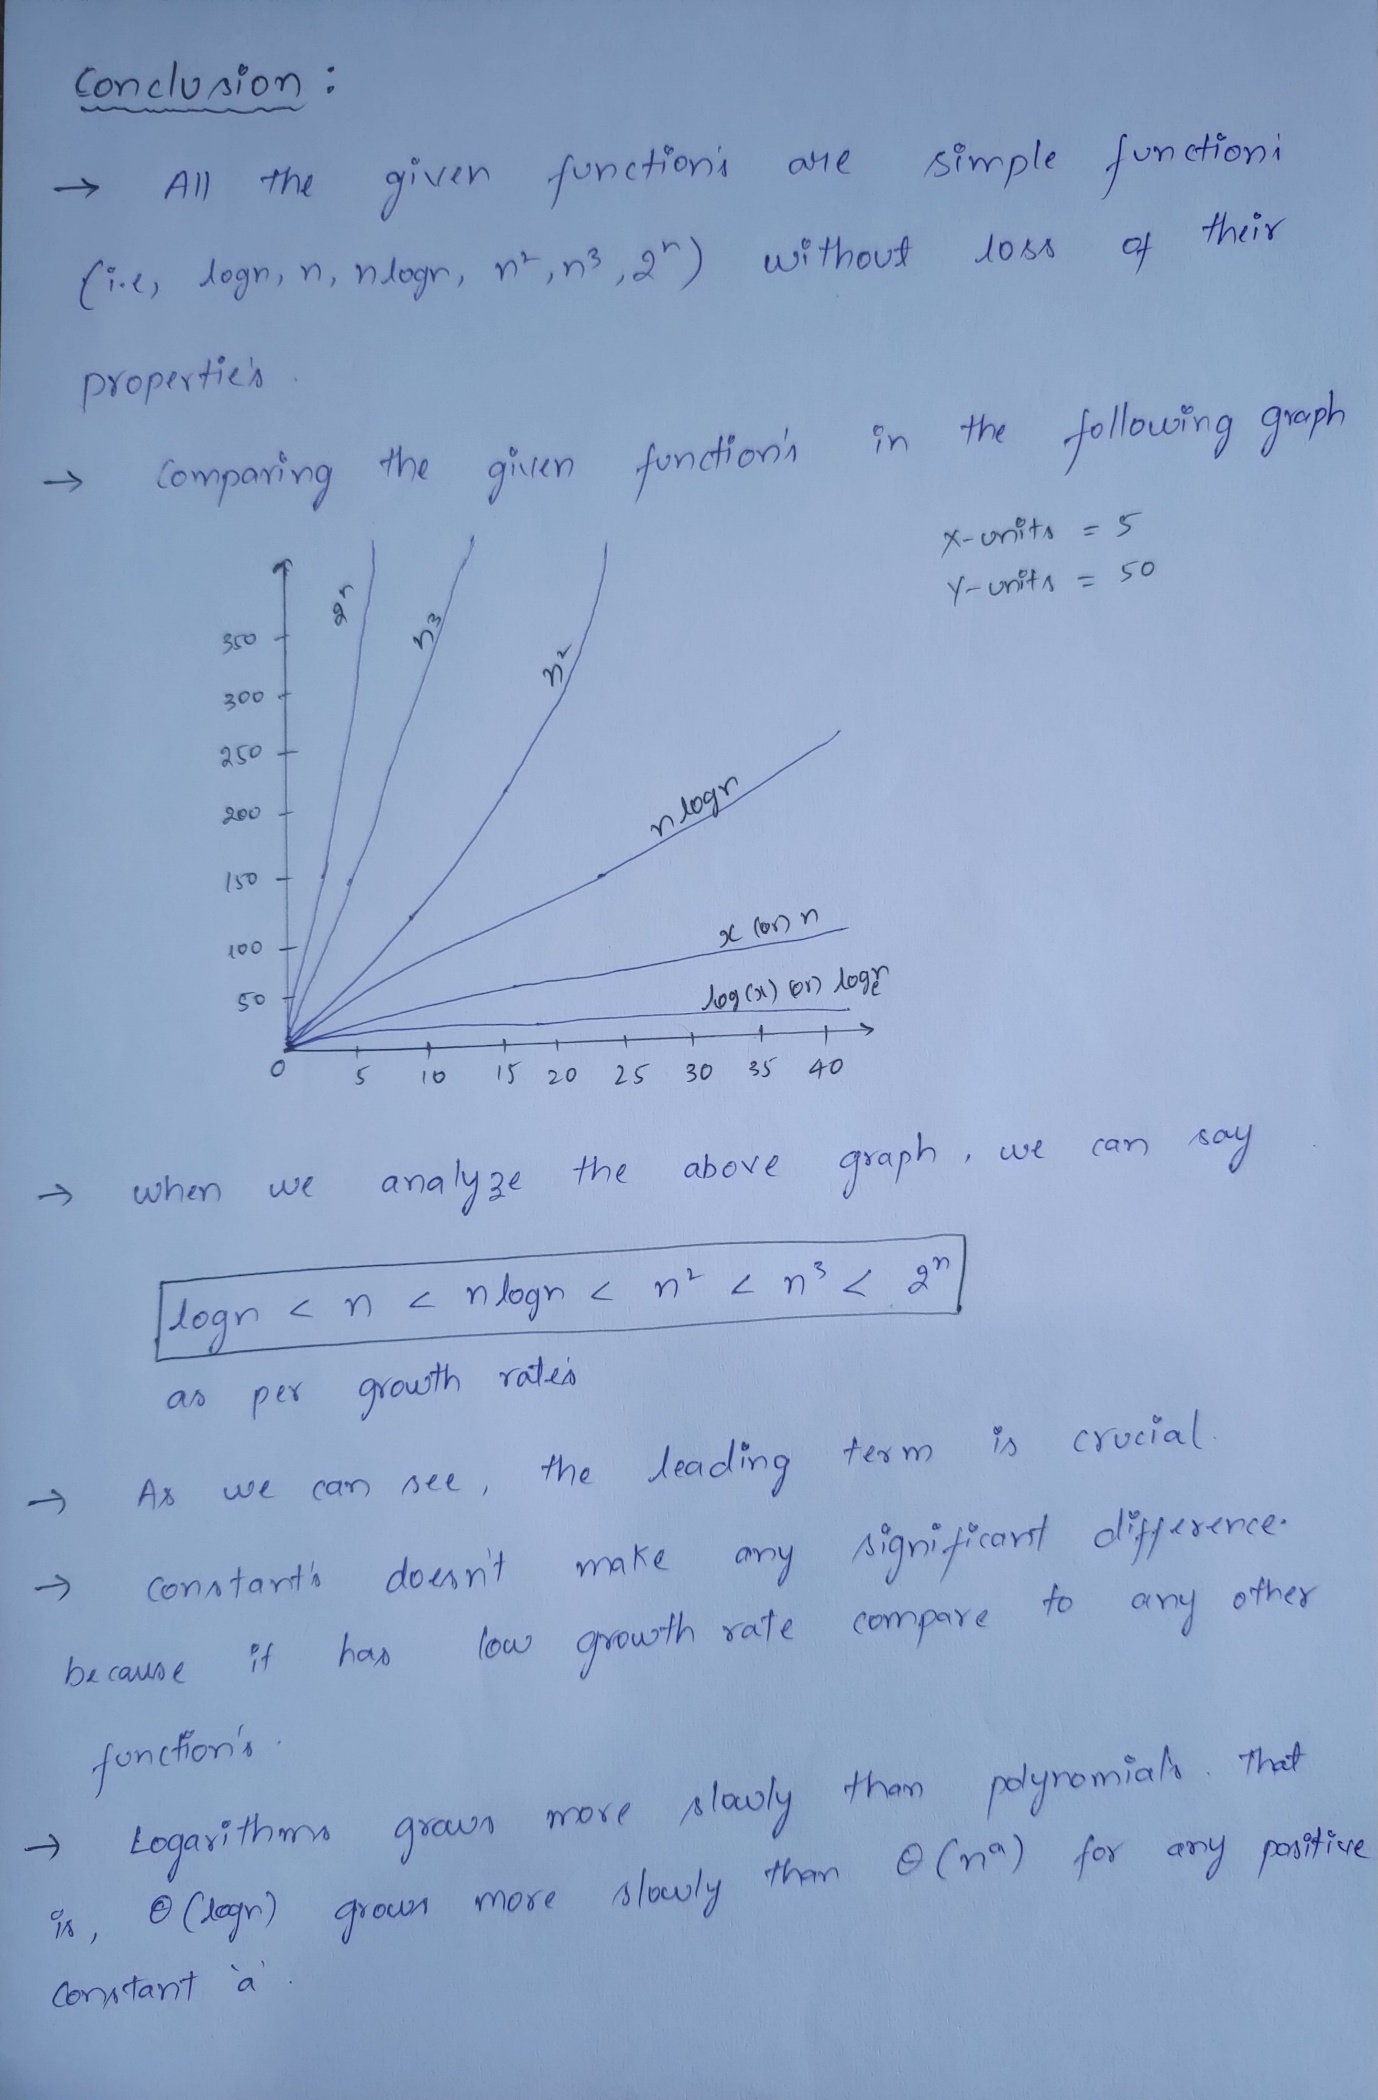 Conclusion :
→ All the given function's are simple functions
(i.e, logn, n, nlogn, n², n³, 2ⁿ) without loss of their
propertie's.
→ Comparing the given function's in the following graph
X-units = 5
Y-units = 50
2ⁿ
n³
n²
350
300
250
200
150
100
50
n logn
x (or) n
log(x) (or) logₑn
0 5 10 15 20 25 30 35 40
→ when we analyze the above graph, we can say
logn < n < nlogn < n² < n³ < 2ⁿ
as per growth rate's
→ As we can see, the leading term is crucial.
→ constant's doesn't make any significant difference.
because it has low growth rate compare to any other
function's.
→ Logarithms grows more slowly than polynomials. That
is, Θ(logn) grows more slowly than Θ(nᵃ) for any positive
constant 'a'.